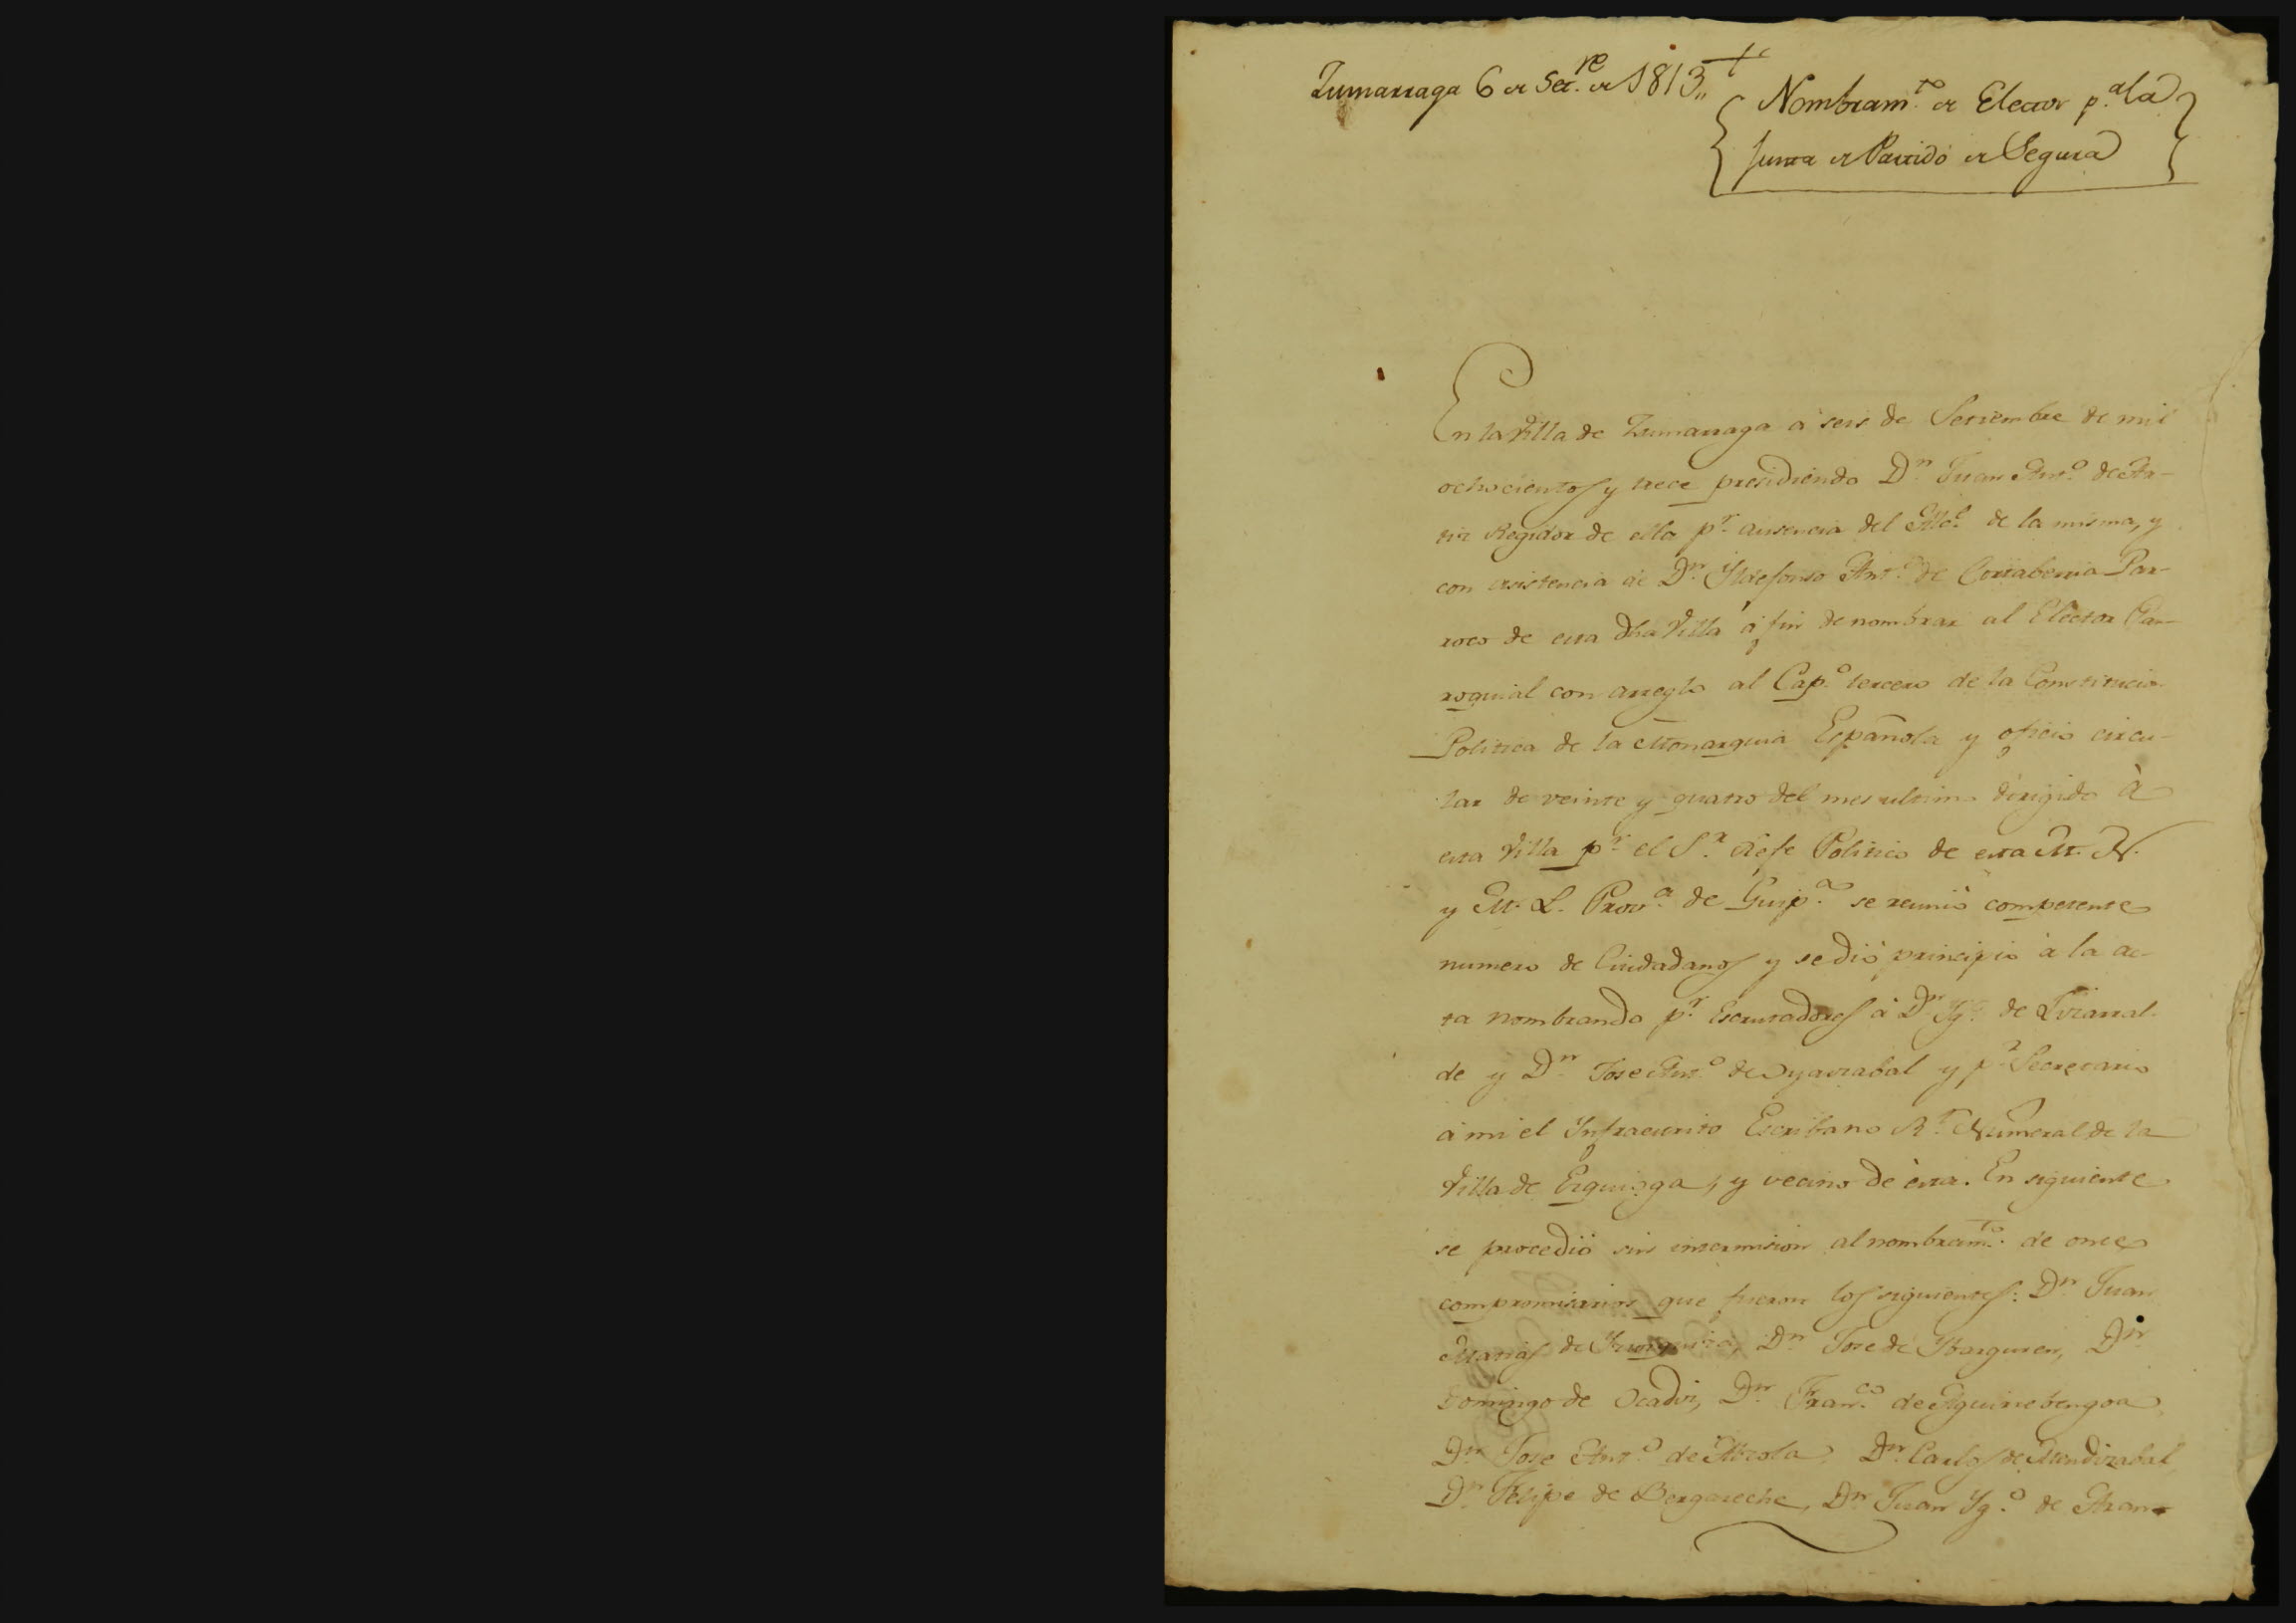 Zumarraga 6 de Set.re de 1813,,
Nombram.to de Elector p.a la
Junta de Partido de Segura
En la Villa de Zumarraga à seis de Setiembre de mil
ochocientos y trece presidiendo D.n Juan Ant.o de
Regidor de ella p.r ausencia del Alc.e de la misma, y
con asistencia de D.n Yldefonso Ant.o de Cortaberria Par-
roco de esta dha Villa á fin de nombrar al Elector Par-
roquial con arreglo al Cap.o tercero de la Constitucion
Politica de la Monarquia Española y oficio circu-
lar de veinte y quatro del mes ultimo dirigido à
esta Villa p.r el S.r Xefe Politico de esta M. N.
y M. L. Prov.a de Guip.a se reunió competente
numero de Ciudadanos y se dió principio à la ac-
ta nombrando p.r Escrutadores à D.n Yg.o de Lizarral-
de y D.n Jose Ant.o de Oyarzabal y p.r Secretario
à mi el Infraescrito Escribano R.l Numeral de la
Villa de Ezquioga, y vecino de èsta. En siguiente
se procedió sin intermision al nombram.to de once
compromisarios que fueron los siguientes: D.n Juan
Matias de D.n Jose de Ybarguren, D.n
Domingo de D.n Fran.co de Aguinebengoa
D.n Jose Ant.o de Alzola, D.n Carlos de Mendizabal,
D.n Felipe de Bergareche, D.n Juan Yg.o de Aran-